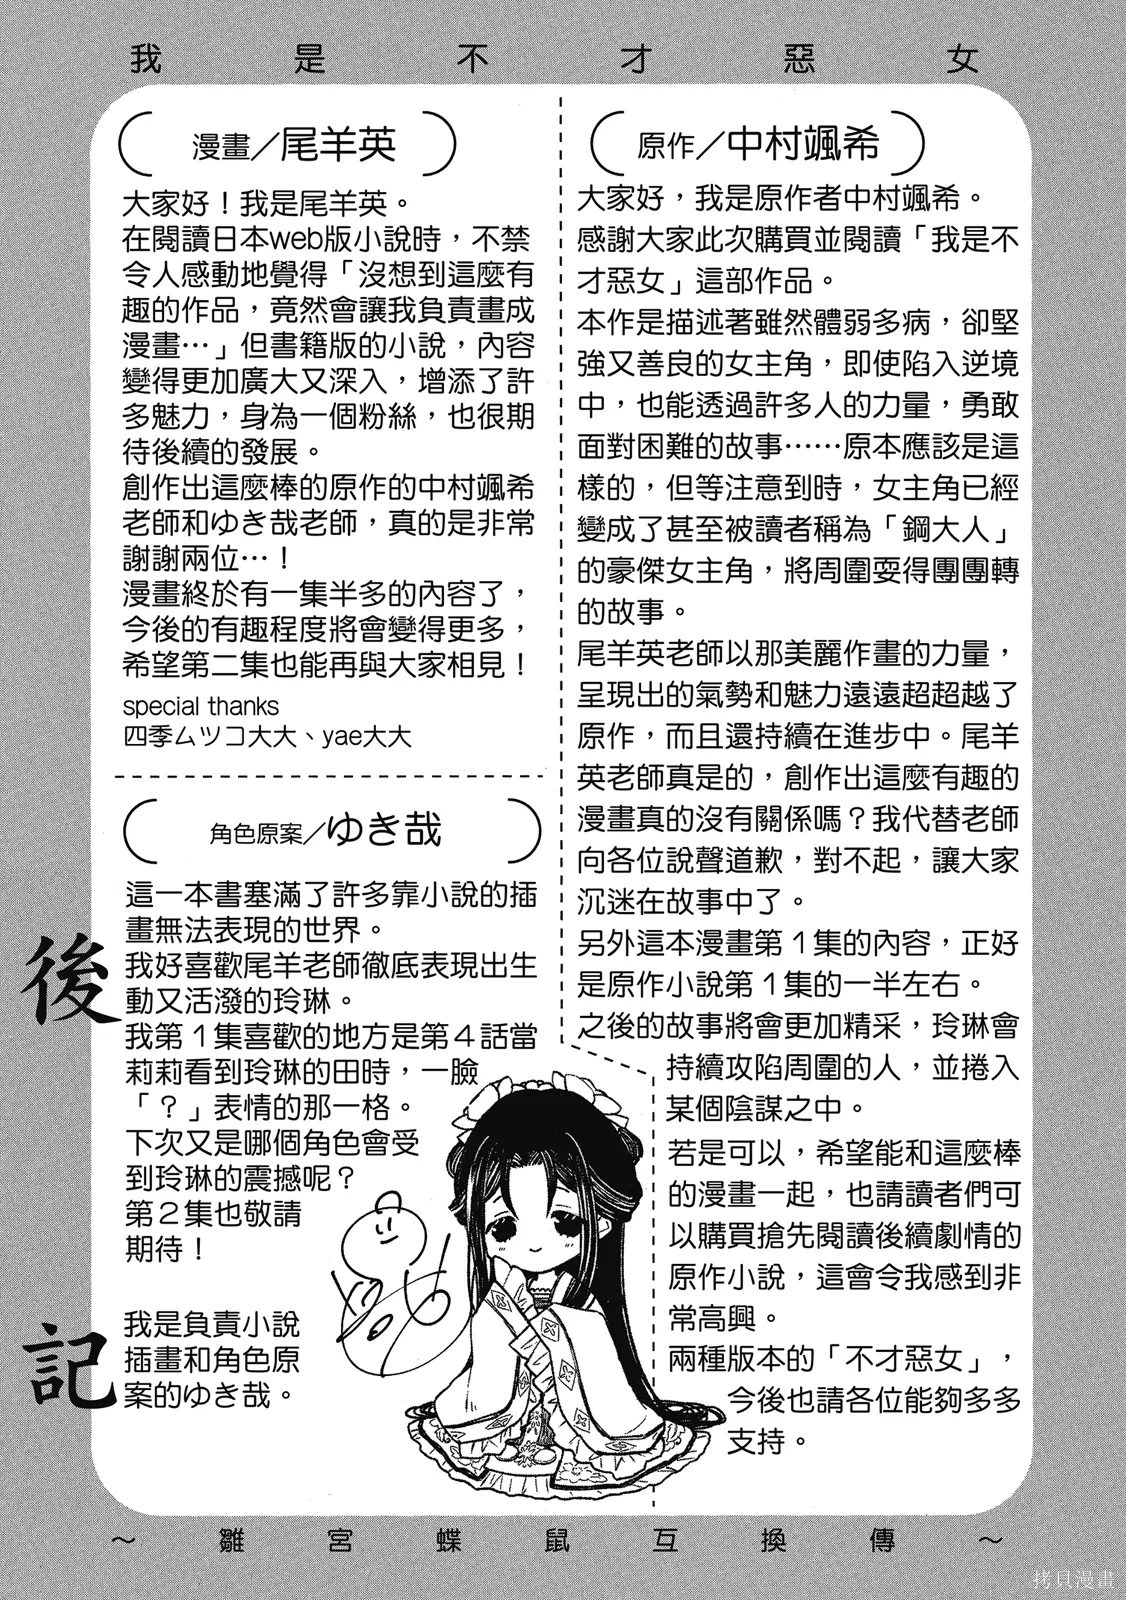 我是不才惡女
漫畫／尾羊英
大家好！我是尾羊英。
在閱讀日本web版小說時，不禁
令人感動地覺得「沒想到這麼有
趣的作品，竟然會讓我負責畫成
漫畫…」但書籍版的小說，內容
變得更加廣大又深入，增添了許
多魅力，身為一個粉絲，也很期
待後續的發展。
創作出這麼棒的原作的中村颯希
老師和ゆき哉老師，真的是非常
謝謝兩位…！
漫畫終於有一集半多的內容了，
今後的有趣程度將會變得更多，
希望第二集也能再與大家相見！
special thanks
四季ムツコ大大、yae大大
角色原案／ゆき哉
這一本書塞滿了許多靠小說的插
畫無法表現的世界。
我好喜歡尾羊老師徹底表現出生
動又活潑的玲琳。
我第1集喜歡的地方是第4話當
莉莉看到玲琳的田時，一臉
「？」表情的那一格。
下次又是哪個角色會受
到玲琳的震撼呢？
第2集也敬請
期待！
我是負責小說
插畫和角色原
案的ゆき哉。
原作／中村颯希
大家好，我是原作者中村颯希。
感謝大家此次購買並閱讀「我是不
才惡女」這部作品。
本作是描述著雖然體弱多病，卻堅
強又善良的女主角，即使陷入逆境
中，也能透過許多人的力量，勇敢
面對困難的故事……原本應該是這
樣的，但等注意到時，女主角已經
變成了甚至被讀者稱為「鋼大人」
的豪傑女主角，將周圍耍得團團轉
的故事。
尾羊英老師以那美麗作畫的力量，
呈現出的氣勢和魅力遠遠超超越了
原作，而且還持續在進步中。尾羊
英老師真是的，創作出這麼有趣的
漫畫真的沒有關係嗎？我代替老師
向各位說聲道歉，對不起，讓大家
沉迷在故事中了。
另外這本漫畫第1集的內容，正好
是原作小說第1集的一半左右。
之後的故事將會更加精采，玲琳會
持續攻陷周圍的人，並捲入
某個陰謀之中。
若是可以，希望能和這麼棒
的漫畫一起，也請讀者們可
以購買搶先閱讀後續劇情的
原作小說，這會令我感到非
常高興。
兩種版本的「不才惡女」，
今後也請各位能夠多多
支持。
後記
～雛宮蝶鼠互換傳～
拷貝漫畫